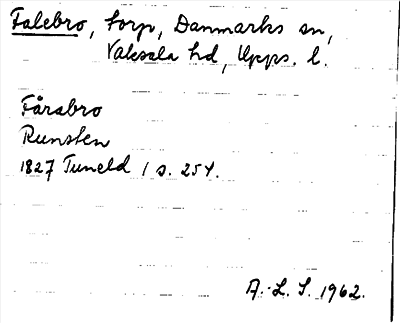 Falebro, torp, Danmarks sn,
Vaksala hd, Upps. l.
Fårabro
Runsten
1827 Tuneld 1 s. 254.
A.-L. S. 1962.